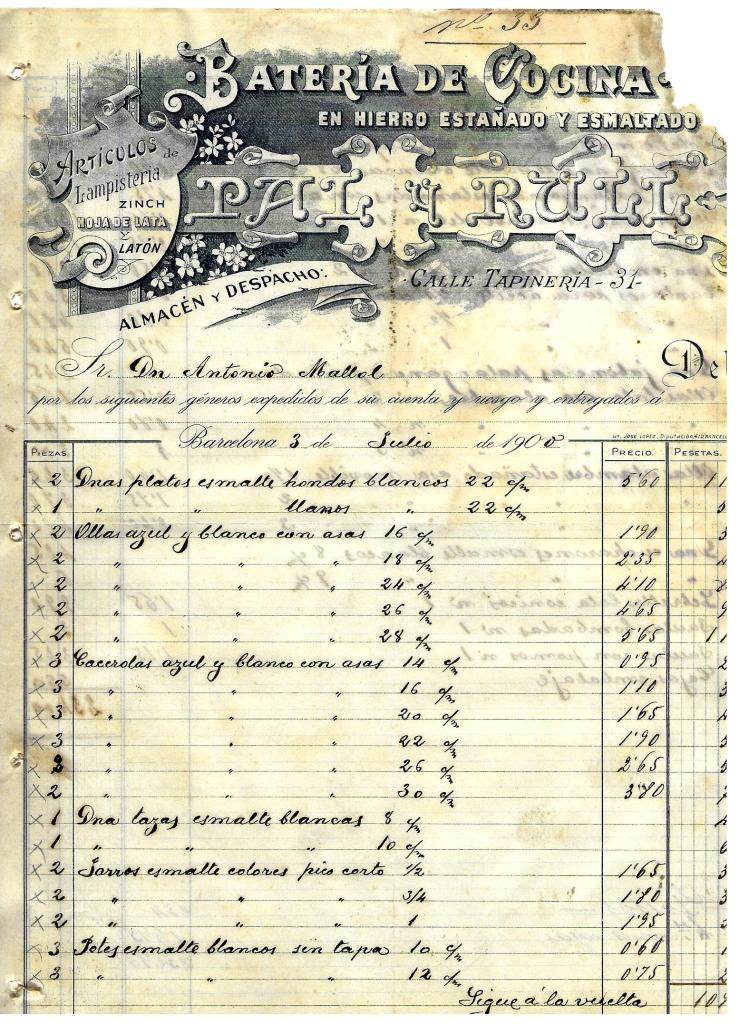 nº 33
BATERÍA DE COCINA
EN HIERRO ESTAÑADO Y ESMALTADO
ARTÍCULOS de
Lampistería
ZINCH
HOJA DE LATA
Y
LATÓN
PAL Y RULL
ALMACÉN Y DESPACHO:
CALLE TAPINERÍA - 31 -
Sr. Dn Antonio Mallol De
por los siguientes géneros expedidos de su cuenta y riesgo y entregados á
Barcelona 3 de Julio de 1900
LIT. JOSE LOPEZ, Diputación, 412 BARCEL
PIEZAS. PRECIO. PESETAS.
x 2 Dnas platos esmalte hondos blancos 22 c/m 5'60 11
x 1 " " llanos " 22 c/m 5
x 2 Ollas azul y blanco con asas 16 c/m 1'90 3
x 2 " " 18 c/m 2'35 4
x 2 " " 24 c/m 4'10 8
x 2 " " 26 c/m 4'65 9
x 2 " " 28 c/m 5'65 11
x 3 Cacerolas azul y blanco con asas 14 c/m 0'95 2
x 3 " " 16 c/m 1'10 3
x 3 " " 20 c/m 1'65 4
x 3 " " 22 c/m 1'90 5
x 2 " " 26 c/m 2'65 5
x 2 " " 30 c/m 3'80 7
x 1 Dna tazas esmalte blancas 8 c/m 4
x 1 " " " 10 c/m 6
x 2 Jarros esmalte colores pico corto 1/2 1'65 3
x 2 " " " 3/4 1'80 3
x 2 " " " 1 1'95 3
x 3 Potes esmalte blancos sin tapa 10 c/m 0'60 1
x 3 " " " 12 c/m 0'75 2
Sigue á la vuelta 10